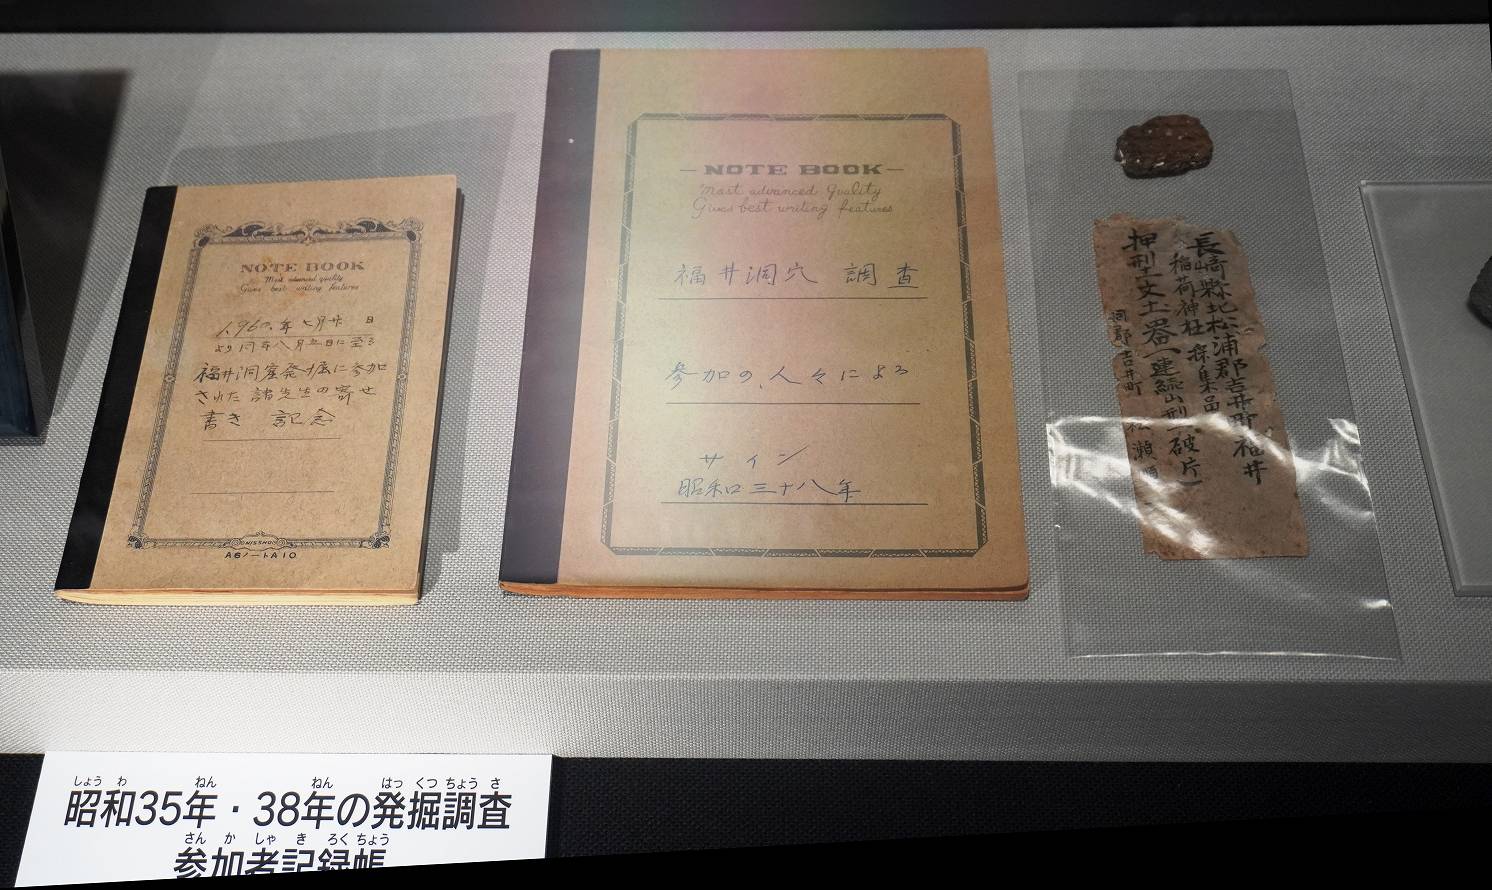 NOTE BOOK
Most advanced quality
Gives best writing features
1960年七月廿 日
より同年八月五日に至る
福井洞窟発掘に参加
された諸先生の寄せ
書き 記念
NISSHO
A6ノートA10
NOTE BOOK
Most advanced Quality
Gives best writing features
福井洞穴 調査
参加の、人々による
サイン
昭和三十八年
長崎縣北松浦郡吉井町福井
稲荷神社 採集品
押型文土器(連続山型 破片)
同郡吉井町 松瀬
しょう わ ねん ねん はっ くつ ちょう さ
昭和35年・38年の発掘調査
さん か しゃ き ろく ちょう
参加者記録帳